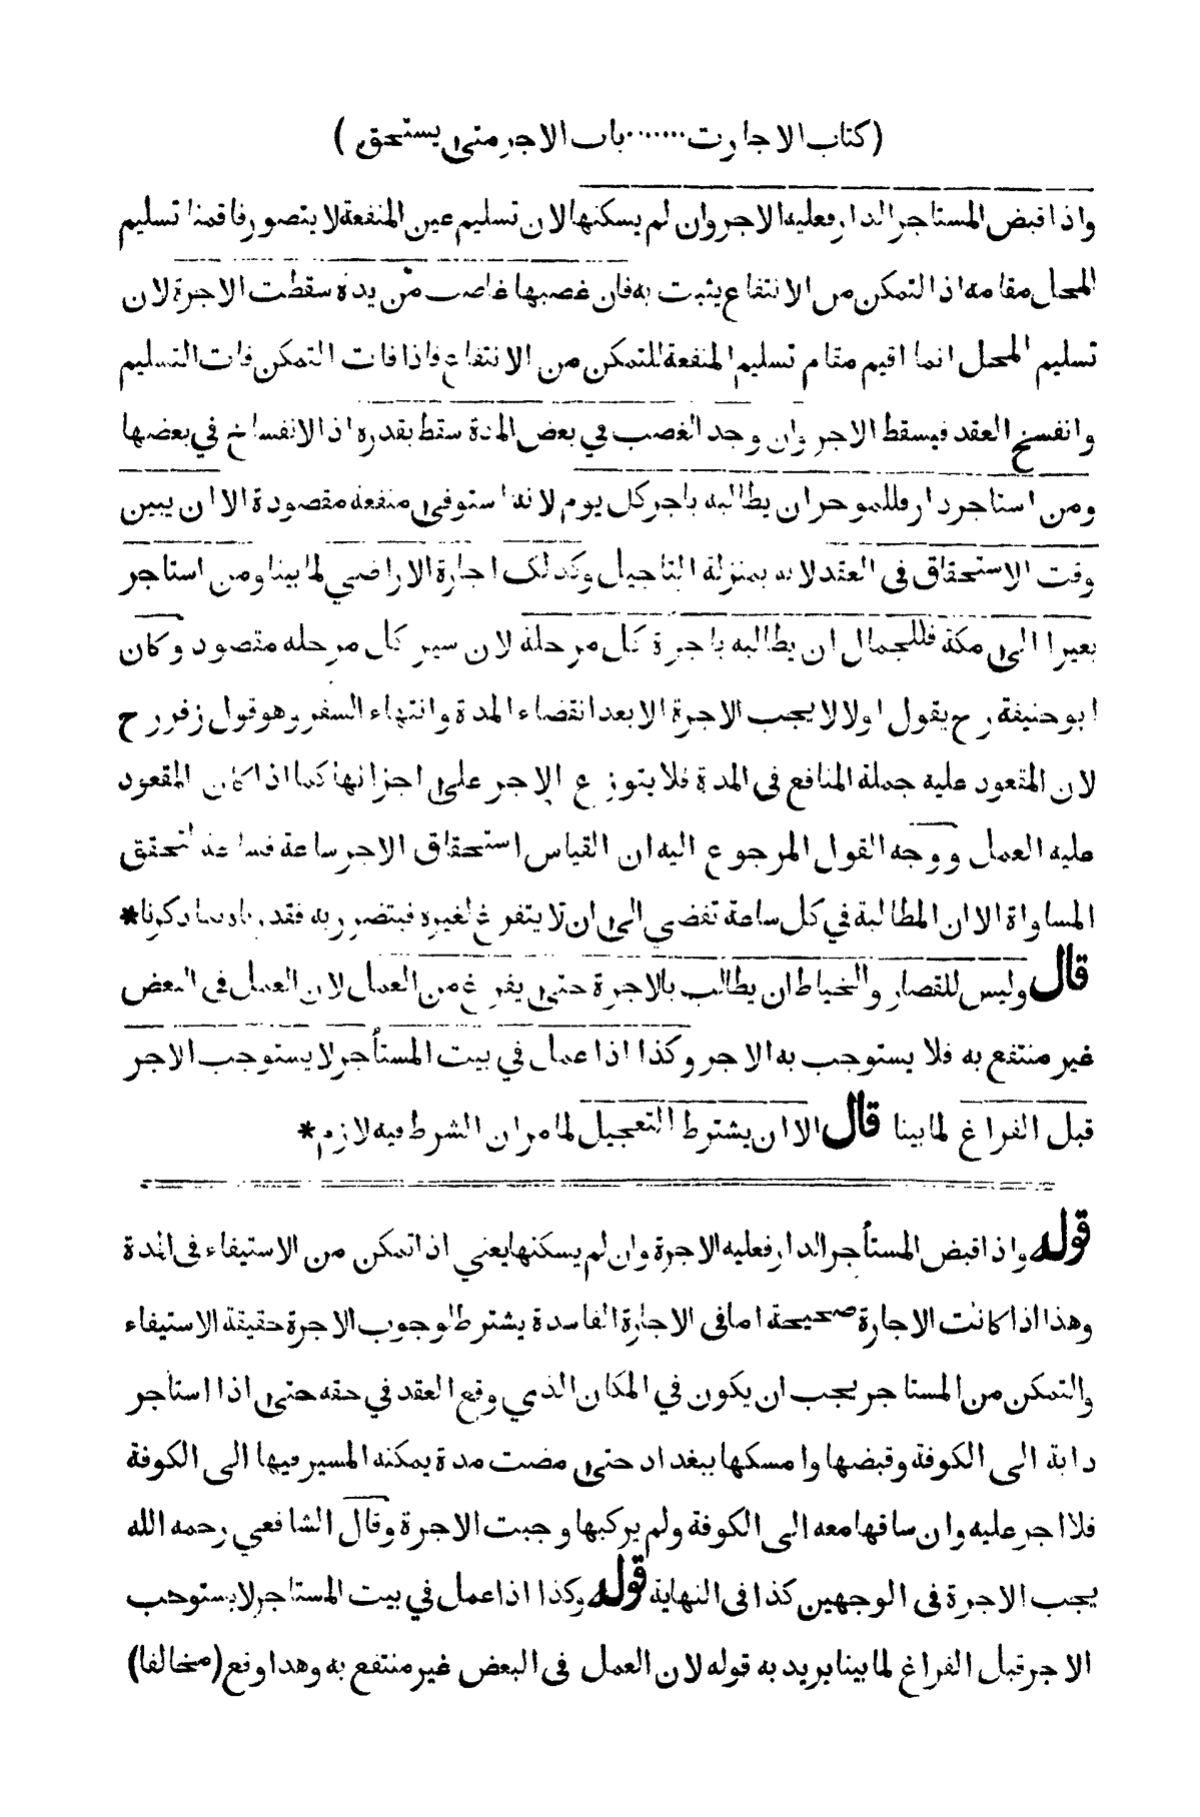 (كتاب الاجارت.......باب الاجر متى يستحق)
واذا قبض المستاجر الدار فعليه الاجر وان لم يسكنها لان تسليم عين المنفعة لا يتصور فاقمنا تسليم
المحل مقامه اذ التمكن من الانتفاع يثبت به فان غصبها غاصب من يده سقطت الاجرة لان
تسليم المحل انما اقيم مقام تسليم المنفعة للتمكن من الانتفاع فاذا فات التمكن فات التسليم
وانفسخ العقد فيسقط الاجر وان وجد الغصب في بعض المدة سقط بقدره اذ الانفساخ في بعضها
ومن استاجر دار فللموجر ان يطالبه باجر كل يوم لانه استوفى منفعة مقصودة الا ان يبين
وقت الاستحقاق فى العقد لانه بمنزلة التاجيل وكذلك اجارة الاراضي لما بينا ومن استاجر
بعيرا الى مكة فللجمال ان يطالبه باجرة كل مرحلة لان سير كل مرحله مقصود وكان
ابو حنيفة رح يقول اولا لا يجب الاجرة الا بعد انقضاء المدة وانتهاء السفر وهو قول زفر رح
لان المقعود عليه جملة المنافع فى المدة فلا يتوزع الاجر على اجزائها كما اذا كان المقعود
عليه العمل ووجه القول المرجوع اليه ان القياس استحقاق الاجر ساعة فساعة لتحقق
المساواة الا ان المطالبة في كل ساعة تفضى الى ان لا يتفرغ لغيره فيتضرر به فقدر بما ذكرنا*
قال وليس للقصار والخياط ان يطالب بالاجرة حتى يفرغ من العمل لان العمل فى البعض
غير منتفع به فلا يستوجب به الاجر وكذا اذا عمل في بيت المستأجر لا يستوجب الاجر
قبل الفراغ لما بينا قال الا ان يشترط التعجيل لما مر ان الشرط فيه لازم*
قوله واذا قبض المستأجر الدار فعليه الاجرة وان لم يسكنها يعني اذا تمكن من الاستيفاء فى المدة
وهذا اذا كانت الاجارة صحيحة اما فى الاجارة الفاسدة يشترط لوجوب الاجرة حقيقة الاستيفاء
والتمكن من المستاجر يجب ان يكون في المكان الذي وقع العقد في حقه حتى اذا استاجر
دابة الى الكوفة وقبضها وامسكها ببغداد حتى مضت مدة يمكنه المسير فيها الى الكوفة
فلا اجر عليه وان ساقها معه الى الكوفة ولم يركبها وجبت الاجرة وقال الشافعي رحمه الله
يجب الاجرة فى الوجهين كذا فى النهاية قوله وكذا اذا عمل في بيت المستاجر لا يستوجب
الاجر قبل الفراغ لما بينا يريد به قوله لان العمل فى البعض غير منتفع به وهذا وقع (مخالفا)